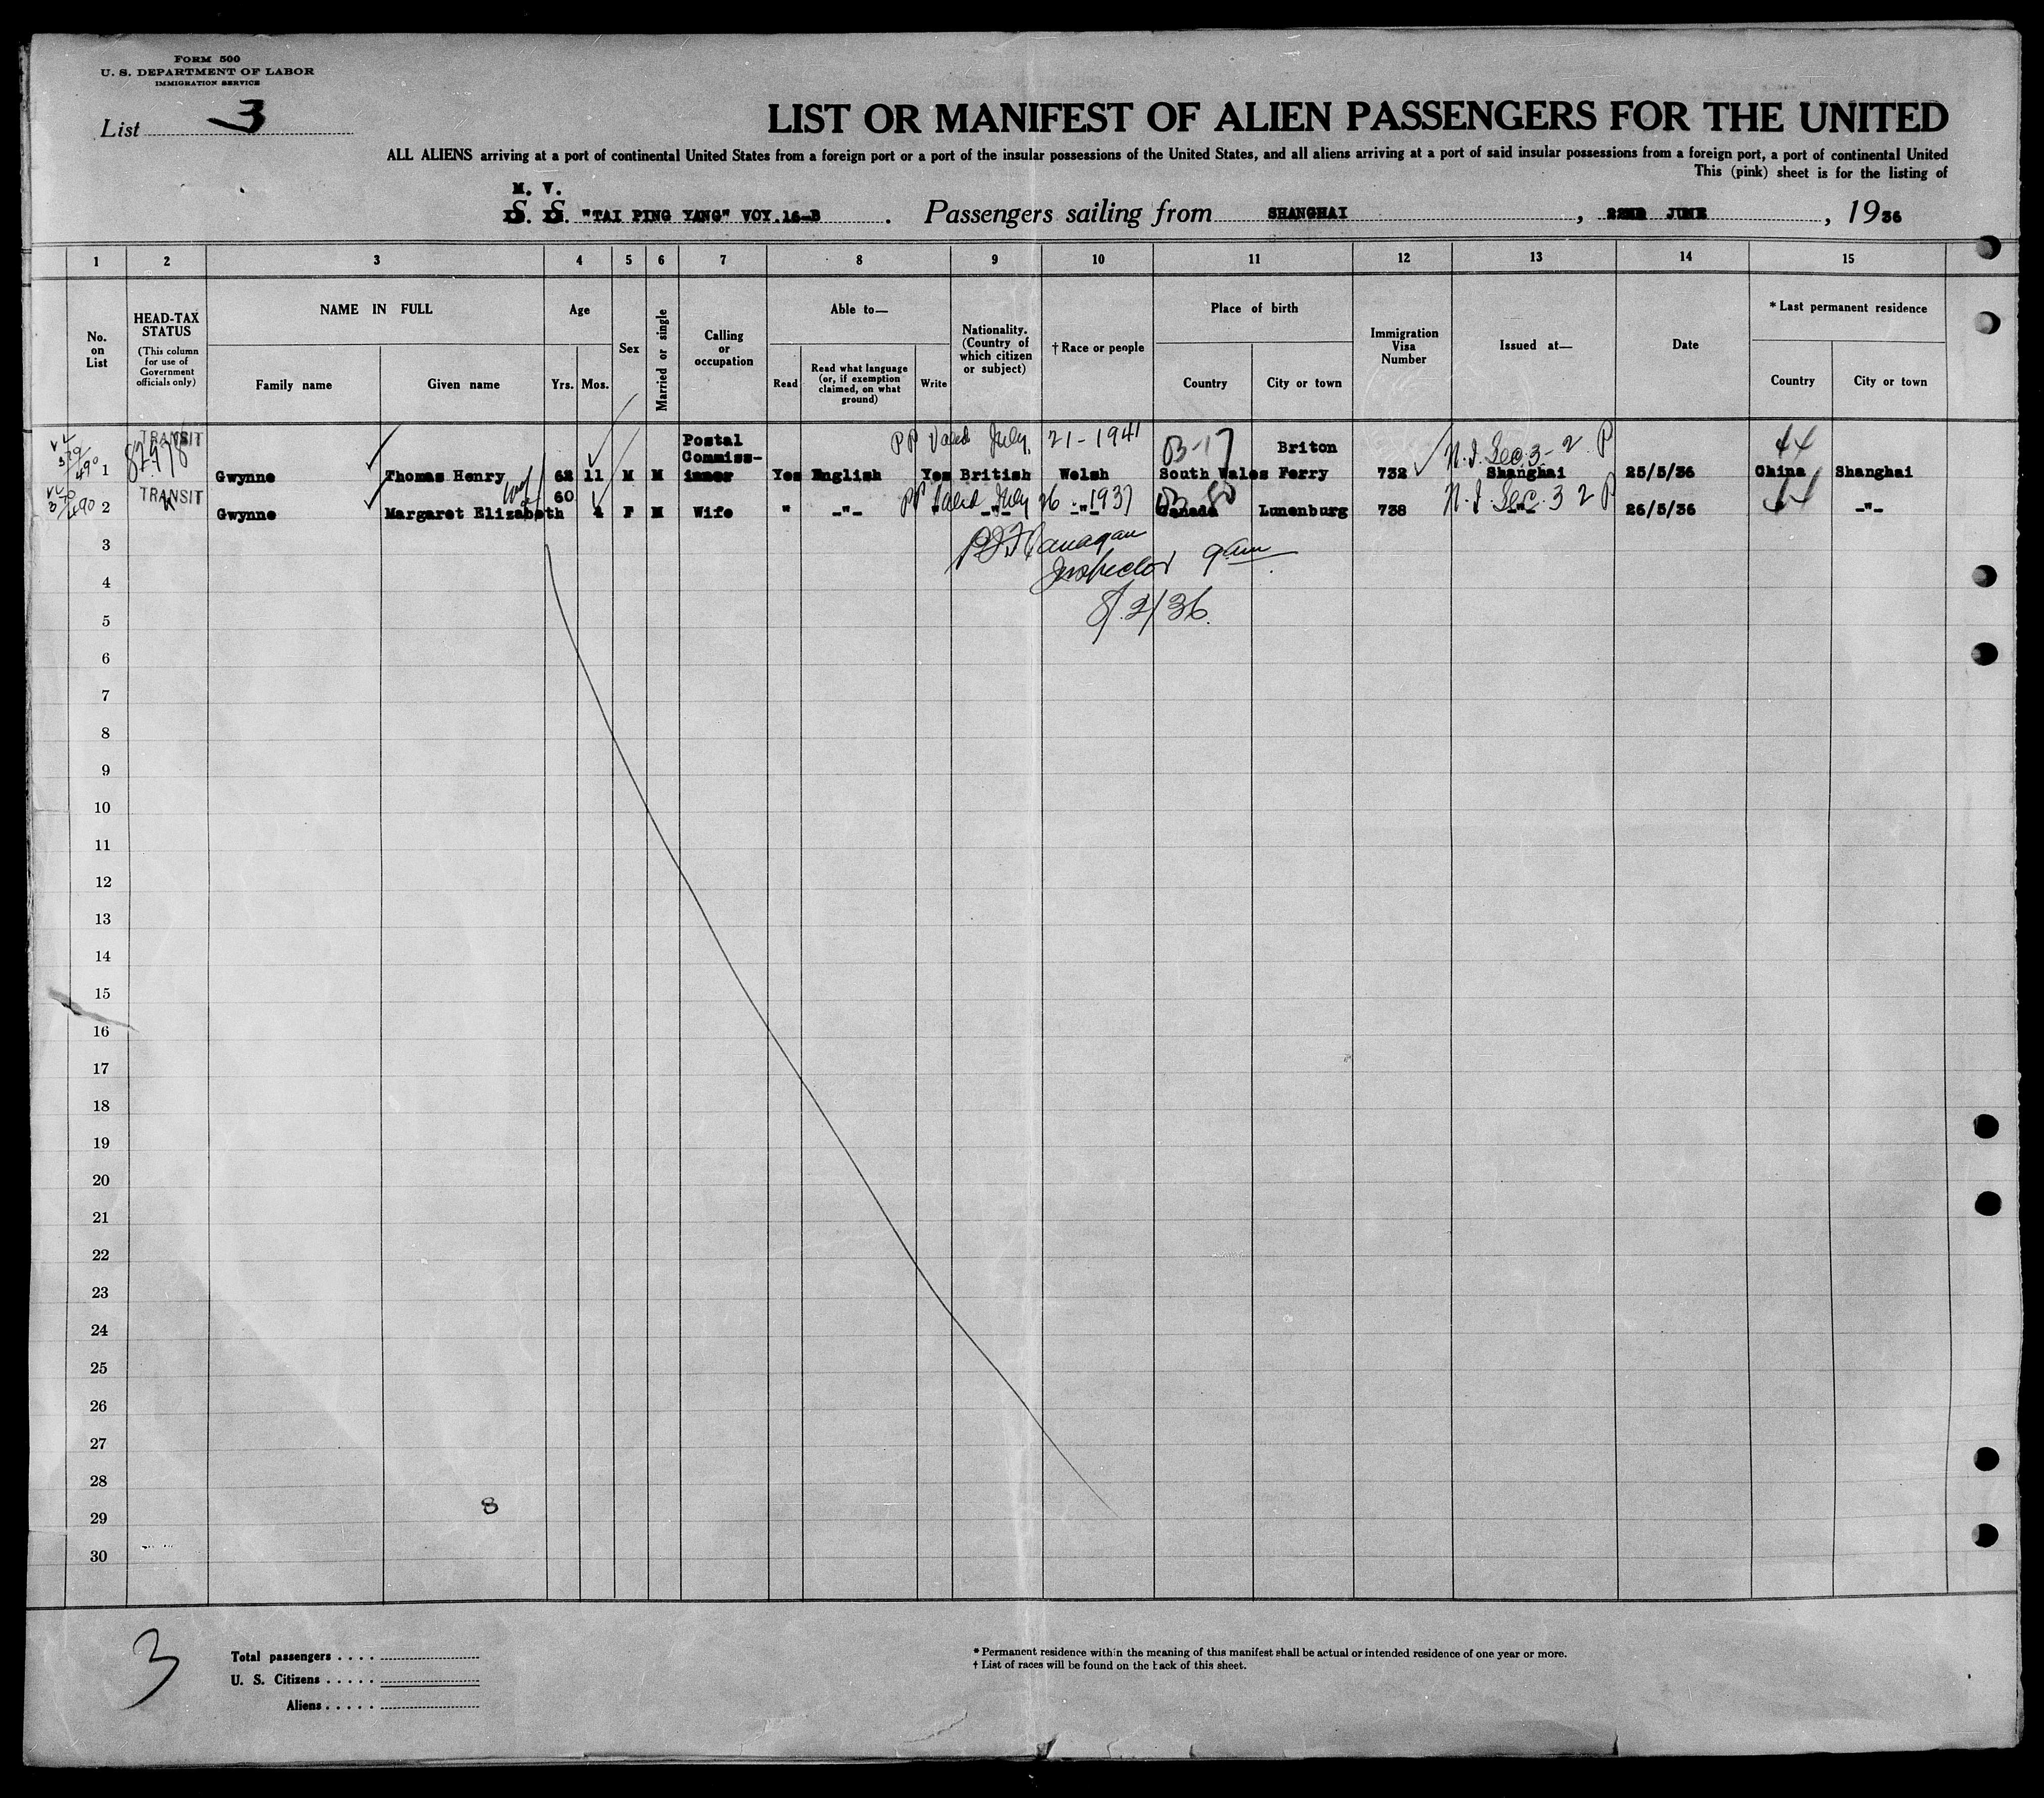 FORM 500
U. S. DEPARTMENT OF LABOR
IMMIGRATION SERVICE
List 3
LIST OR MANIFEST OF ALIEN PASSENGERS FOR THE UNITED
ALL ALIENS arriving at a port of continental United States from a foreign port or a port of the insular possessions of the United States, and all aliens arriving at a port of said insular possessions from a foreign port, a port of continental United
This (pink) sheet is for the listing of
M. V.
S. S. "TAI PING YANG" VOY.16-B . Passengers sailing from SHANGHAI , 22ND JUNE , 1936
1 2 3 4 5 6 7 8 9 10 11 12 13 14 15
No. on List
HEAD-TAX STATUS
(This column for use of Government officials only)
NAME IN FULL
Family name
Given name
Age
Yrs. Mos.
Sex
Married or single
Calling or occupation
Able to—
Read
Read what language (or, if exemption claimed, on what ground)
Write
Nationality. (Country of which citizen or subject)
† Race or people
Place of birth
Country
City or town
Immigration Visa Number
Issued at—
Date
* Last permanent residence
Country
City or town
TRANSIT Postal PP Valid July, 21-1941 03-17 Briton N.I. Sec. 3-2 P 44
82978 Commiss-
370/490 1 Gwynne Thomas Henry 62 11 M M ioner Yes English Yes British Welsh South Wales Ferry 732 Shanghai 25/5/36 China Shanghai
TRANSIT 60 PP Valid July 26 - 1937 N.I. Sec. 3 2 P 44
370/490 2 Gwynne Margaret Elizabeth 4 F M Wife " -"- -"- -"- Canada Lunenburg 738 -"- 26/5/36 -"-
3 Flanagan
4 Inspector
5 8/2/36.
6
7
8
9
10
11
12
13
14
15
16
17
18
19
20
21
22
23
24
25
26
27
28
8
29
30
3
Total passengers . . . .
U. S. Citizens . . . . .
Aliens . . . . .
* Permanent residence within the meaning of this manifest shall be actual or intended residence of one year or more.
† List of races will be found on the back of this sheet.